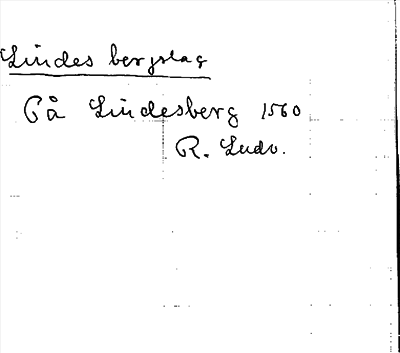 Lindes bergslag
På Lindesberg 1560
R. Ludv.